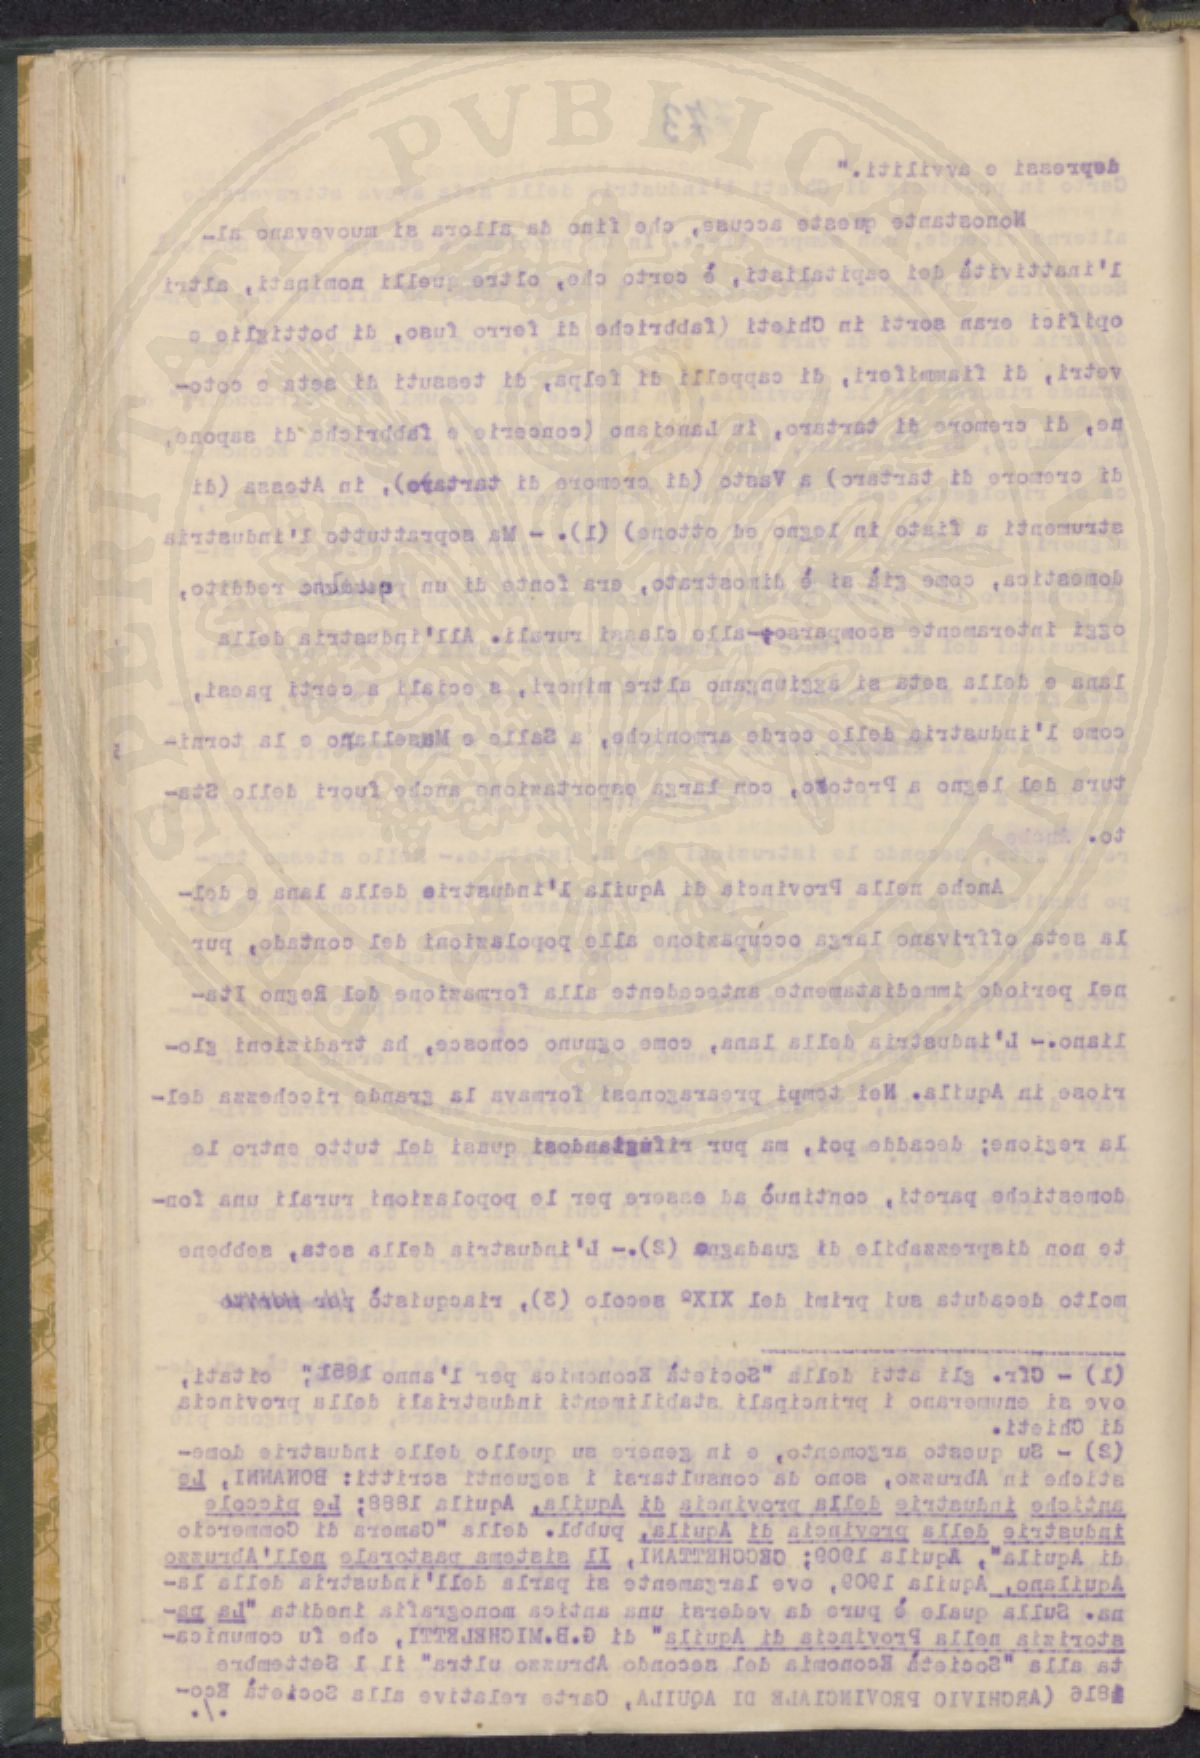 73
depressi e avviliti."
Nonostante queste accuse, che fino da allora si muovevano al-
l'inattività dei capitalisti, è certo che, oltre quelli nominati, altri
opifici eran sorti in Chieti (fabbriche di ferro fuso, di bottiglie e
vetri, di fiammiferi, di cappelli di felpa, di tessuti di seta e coto-
ne, di cremore di tartaro, in Lanciano (concerie e fabbriche di sapone,
di cremore di tartaro) a Vasto (di cremore di tartaro), in Atessa (di
strumenti a fiato in legno ed ottone) (1). - Ma soprattutto l'industria
domestica, come già si è dimostrato, era fonte di un reddito,
oggi interamente scomparso,-alle classi rurali. All'industria della
lana e della seta si aggiungano altre minori, s eciali a certi paesi,
come l'industria delle corde armoniche, a Salle e Musellaro e la torni-
tura del legno a Pretoro, con larga esportazione anche fuori dello Sta-
to. Anche
Anche nella Provincia di Aquila l'industrie della lana e del-
la seta offrivano larga occupazione alle popolazioni del contado, pur
nel periodo immediatamente antecedente alla formazione del Regno Ita-
liano.- L'industria della lana, come ognuno conosce, ha tradizioni glo-
riose in Aquila. Nei tempi prearagonesi formava la grande ricchezza del-
la regione; decadde poi, ma pur rifugiandosi quasi del tutto entro le
domestiche pareti, continuò ad essere per le popolazioni rurali una fon-
te non disprezzabile di guadagno (2).- L'industria della seta, sebbene
molto decaduta sui primi del XIXº secolo (3), riacquistò per merito
(1) - Cfr. gli atti della "Società Economica per l'anno 1851", citati,
ove si enumerano i principali stabilimenti industriali della provincia
di Chieti.
(2) - Su questo argomento, e in genere su quello delle industrie dome-
stiche in Abruzzo, sono da consultarsi i seguenti scritti: BONANNI, Le
antiche industrie della provincia di Aquila, Aquila 1888; Le piccole
industrie della provincia di Aquila, pubbl. della "Camera di Commercio
di Aquila", Aquila 1909; CECCHETTANI, Il sistema pastorale nell'Abruzzo
Aquilano, Aquila 1909, ove largamente si parla dell'industria della la-
na. Sulla quale è pure da vedersi una antica monografia inedita "La pa-
storizia nella Provincia di Aquila" di G.B.MICHELETTI, che fu comunica-
ta alla "Società Economia del secondo Abruzzo ultra" il 1 Settembre
1816 (ARCHIVIO PROVINCIALE DI AQUILA, Carte relative alla Società Eco-
./.